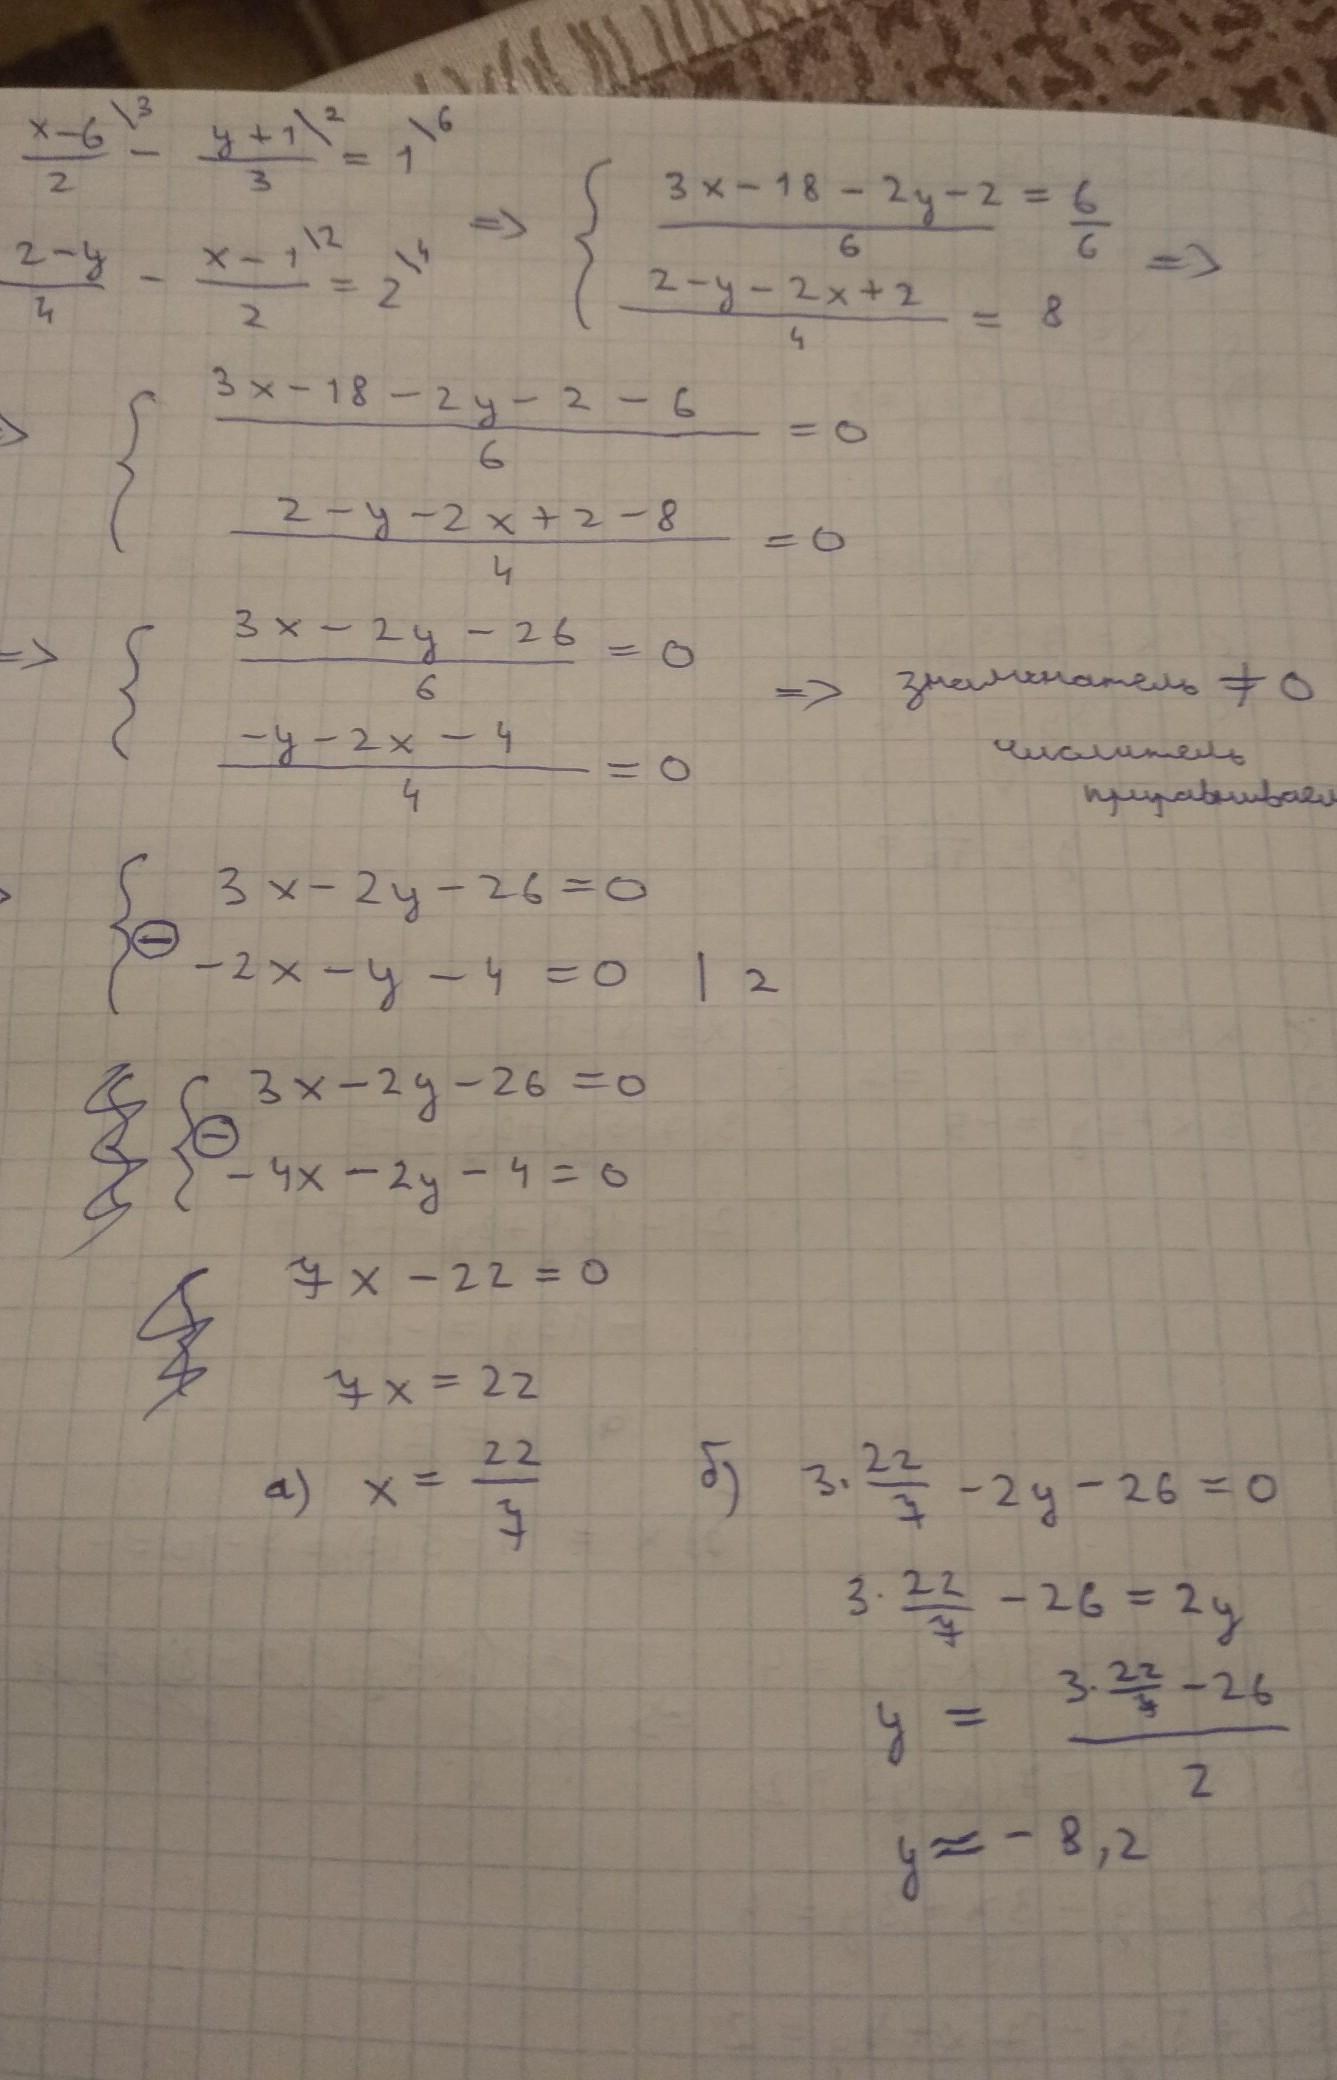 x-6\3/2 - y+1\2/3 = 1\6
2-y/4 - x-1\2/2 = 2\4
=> { 3x-18-2y-2/6 = 6/6
2-y-2x+2/4 = 8 =>
=> { 3x-18-2y-2-6/6 = 0
2-y-2x+2-8/4 = 0
=> { 3x-2y-26/6 = 0
-y-2x-4/4 = 0
=> знаменатель ≠ 0
числитель
приравниваем
{ 3x-2y-26=0
⊖ -2x-y-4=0 | 2
{ 3x-2y-26=0
⊖ -4x-2y-4=0
7x-22=0
7x=22
а) x = 22/7
б) 3·22/7 -2y-26=0
3·22/7 -26=2y
y = 3·22/7 -26/2
y≈-8,2